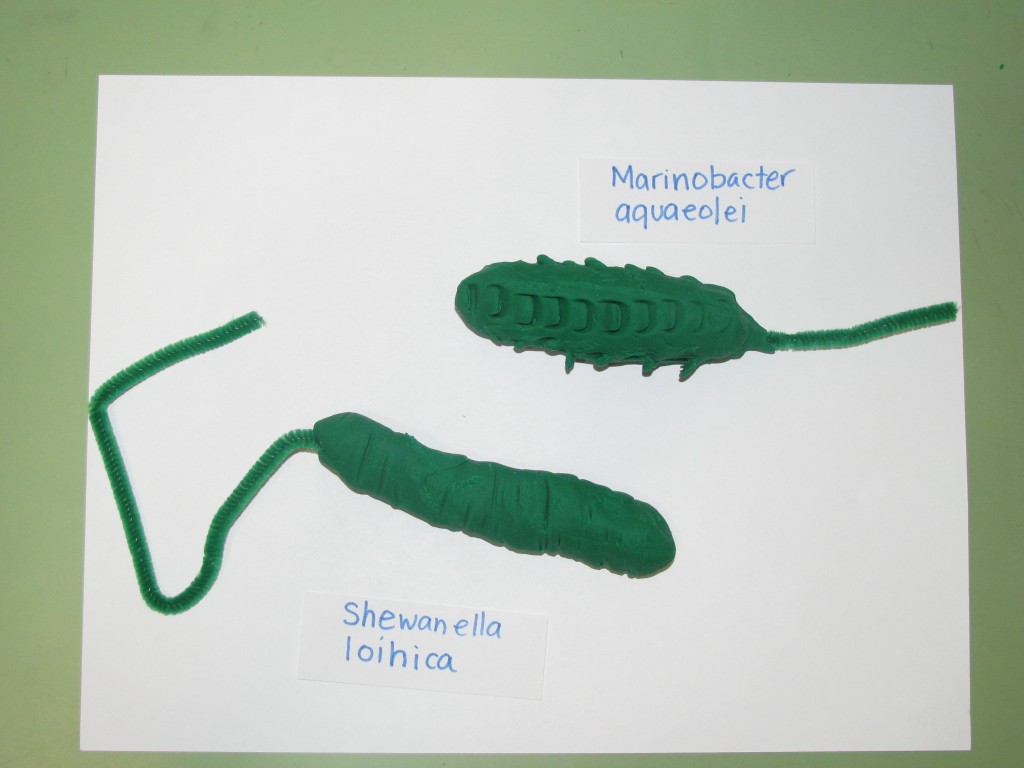 Marinobacter
aquaeolei
Shewanella
loihica